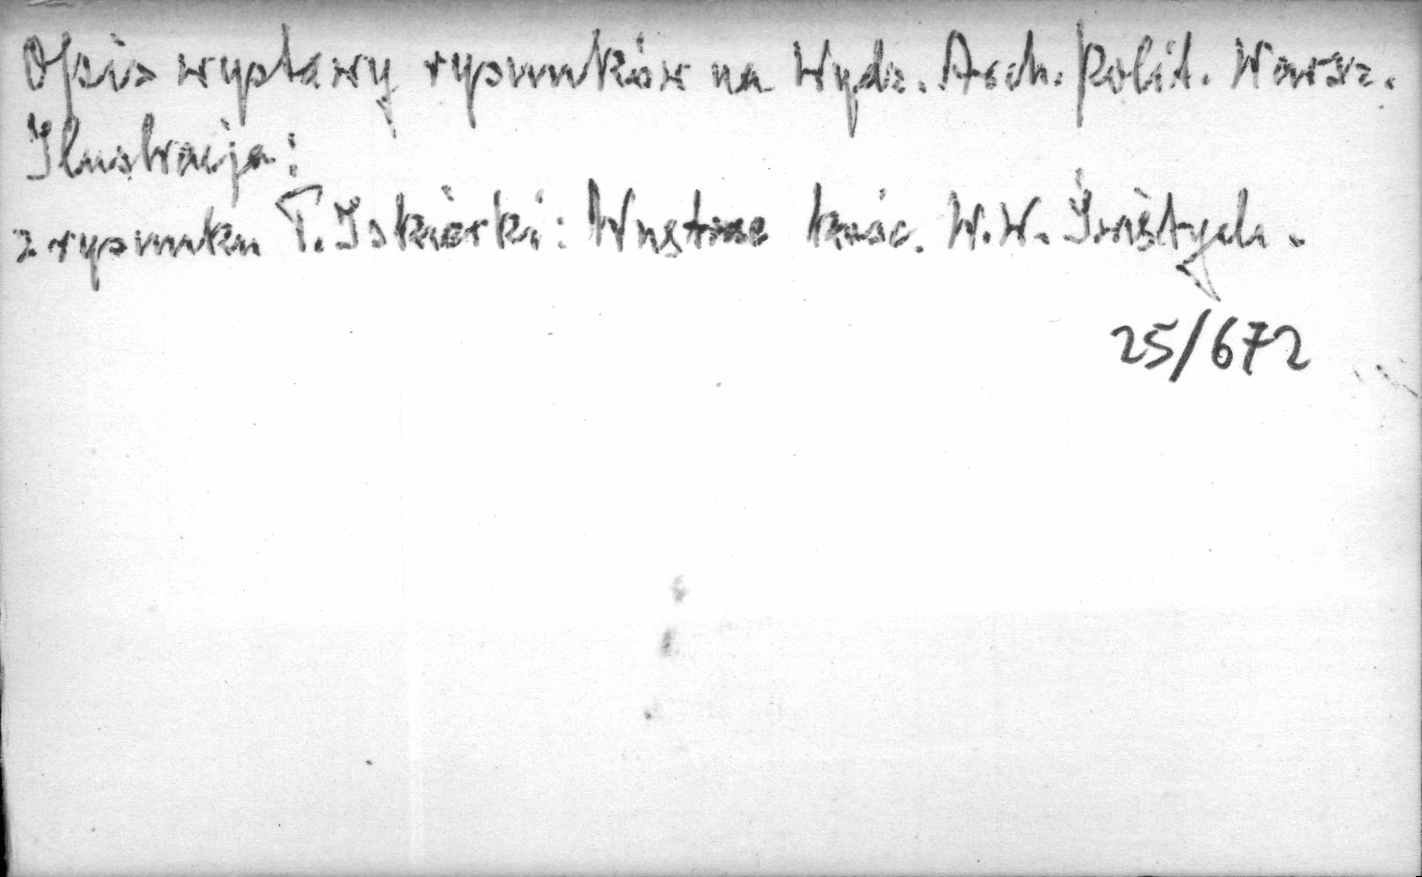 Opis wystawy rysunków na Wydz. Arch. Polit. Warsz.
Ilustracja:
z rysunku T. Iskierki: Wnętrze kośc. W.W. Świętych.
25/672